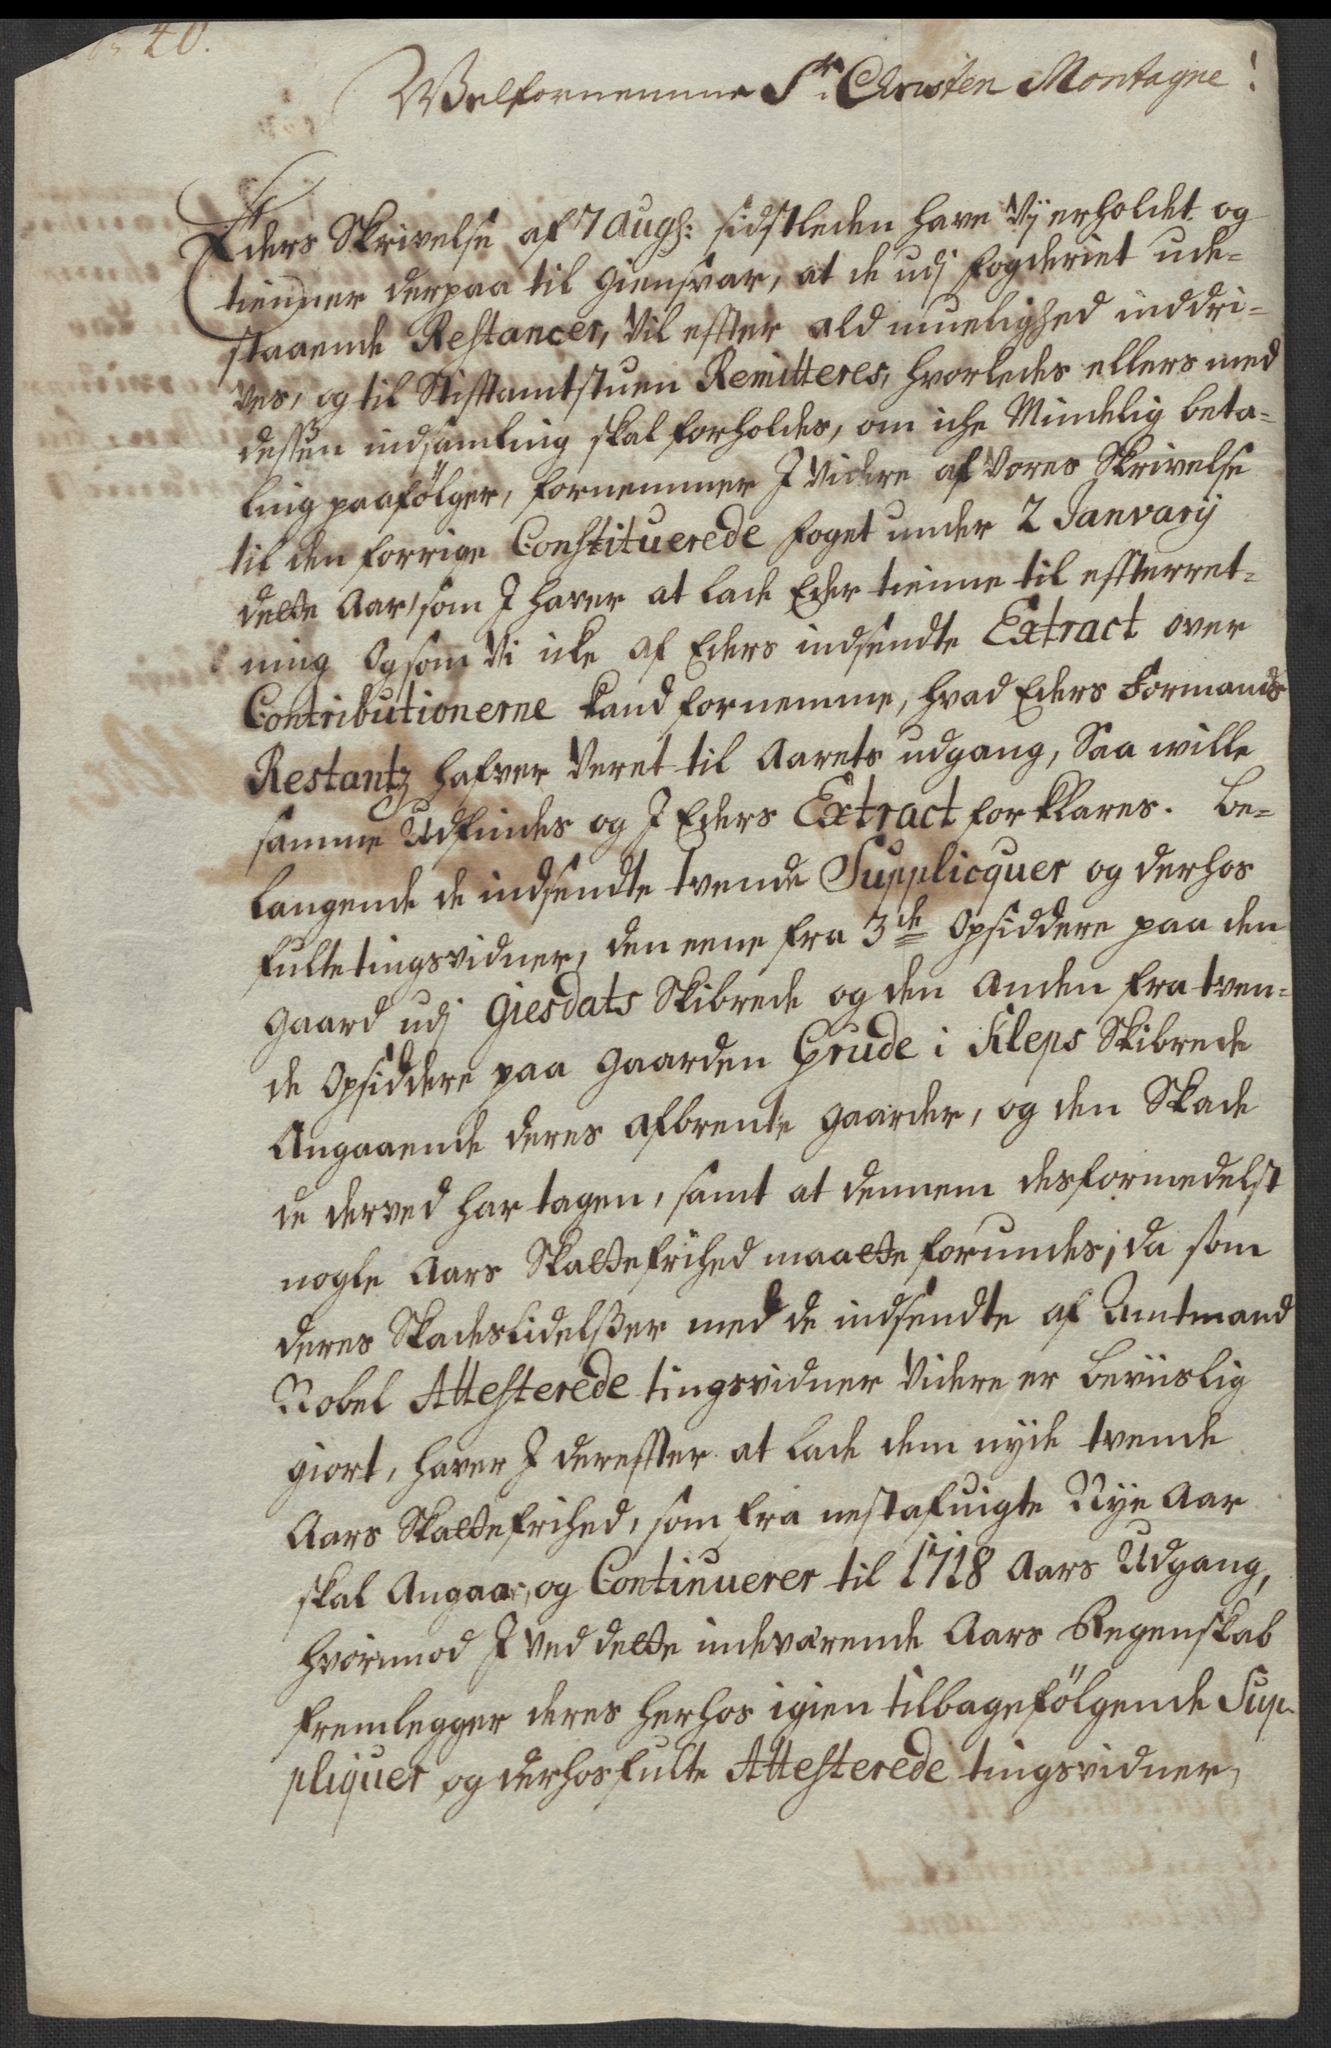 40.
Welfornemme Sr. Christen Montagne!
Eders Skrivelse af 7 Augs: sidstleden have Vij erholdet og
tienner derpaa til giensvar, at de udj fogderiet ude-
staaende Restancer, vil effter ald muelighed inddri-
ves, og til Stiftamtstuen Remitteres, hvorledes ellers med
dessen indsamling skal forholdes, om iche Mindelig beta-
ling paafölger, fornemmer I videre af Vores Skrivelse
til den forrige Constituerede foget under 2 Janvarij
dette Aar, som I haver at lade Eder tienne til effterret-
ning Og som Vi icke af Eders indsendte Extract over
Contributionerne kand fornemme, hvad Eders Formands
Restantz hafver Veret til Aarets udgang, Saa wille
samme Udfindes og I Eders Extract forklares. Be-
langende de indsendte tvende Supplicquer og derhos
fulte tingsvidner, den eene fra 3de Opsiddere paa den
gaard udj Giesdals Skibrede og den Anden fra tven-
de Opsiddere paa gaarden Grude i Kleps Skibrede
Angaaende deres afbrente gaarder, og den Skade
de derved har tagen, samt at dennem desformedelst
nogle Aars Skattefrihed maatte forundes; da som
deres Skadeslidelsser med de indsendte af Amtmand
Nobel Attesterede tingsvidner videre er beviislig
giort, haver I dereffter at lade dem nyde tvende
Aars Skattefrihed, som fra nestafvigte Nye Aar
skal Angaa, og Continuerer til 1718 Aars Udgang,
hvorimod I ved dette indeværende Aars Regenskab
fremlegger deres herhos igien tilbagefölgende Sup-
pliquer og derhosfulte Attesterede tingsvidner,